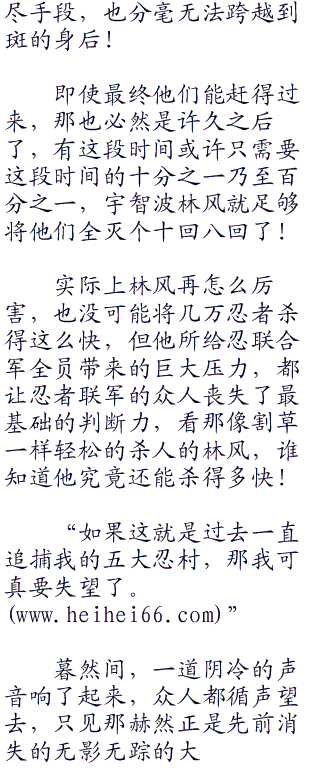 尽手段，也分毫无法跨越到
斑的身后！
即使最终他们能赶得过
来，那也必然是许久之后
了，有这段时间或许只需要
这段时间的十分之一乃至百
分之一，宇智波林风就足够
将他们全灭个十回八回了！
实际上林风再怎么厉
害，也没可能将几万忍者杀
得这么快，但他所给忍联合
军全员带来的巨大压力，都
让忍者联军的众人丧失了最
基础的判断力，看那像割草
一样轻松的杀人的林风，谁
知道他究竟还能杀得多快！
“如果这就是过去一直
追捕我的五大忍村，那我可
真要失望了。
(www.heihei66.com)”
暮然间，一道阴冷的声
音响了起来，众人都循声望
去，只见那赫然正是先前消
失的无影无踪的大